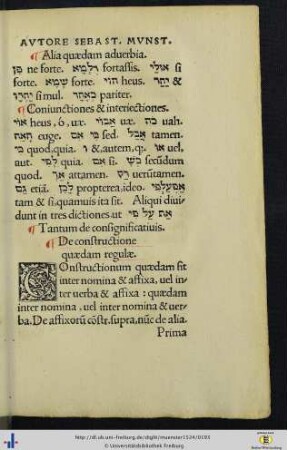 AVTORE SEBAST. MVNST.
¶ Alia quædam aduerbia.
פן ne forte. דלמא fortassis. אולי si
forte. שמא forte. הוי heus. יחד &
יחדו simul. כאחד pariter.
¶ Coniunctiones & interiectiones.
אוי heus, o, ux. אבוי ux. הה uah.
האח euge. אם si. sed אבל tamen.
כי quod, quia. ו &, autem, q;. או uel,
aut. לפי quia. אם si. כפי secũdum
quod. אך attamen. רק uerũtamen.
גם etiã. לכן propterea, ideo.
tam & si, quamuis ita sit. Aliqui diui
dunt in tres dictiones ut את על פי
¶ Tantum de consignificatiuis.
¶ De constructione
quædam regulæ.
COnstructionum quædam sit
inter nomina & affixa, uel in
ter uerba & affixa: quædam
inter nomina, uel inter nomina & uer
ba. De affixorũ cõstr. supra, nũc de alia.
Prima
http://dl.ub.uni-freiburg.de/diglit/muenster1524/0193
© Universitätsbibliothek Freiburg